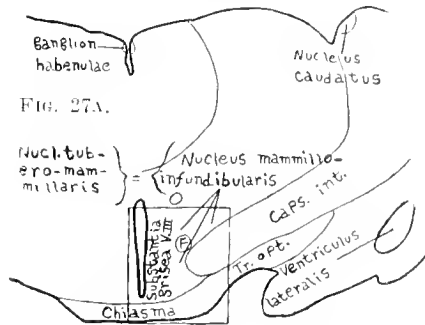 Ganglion
habenulae
Nucleus
caudatus
FIG. 27A.
Nucl. tub-
ero-mam-
millaris
=
Nucleus mammillo-
infundibularis
Caps. int.
Substantia
Grisea V.III
F
Tr. opt.
Ventriculus
lateralis
Chiasma